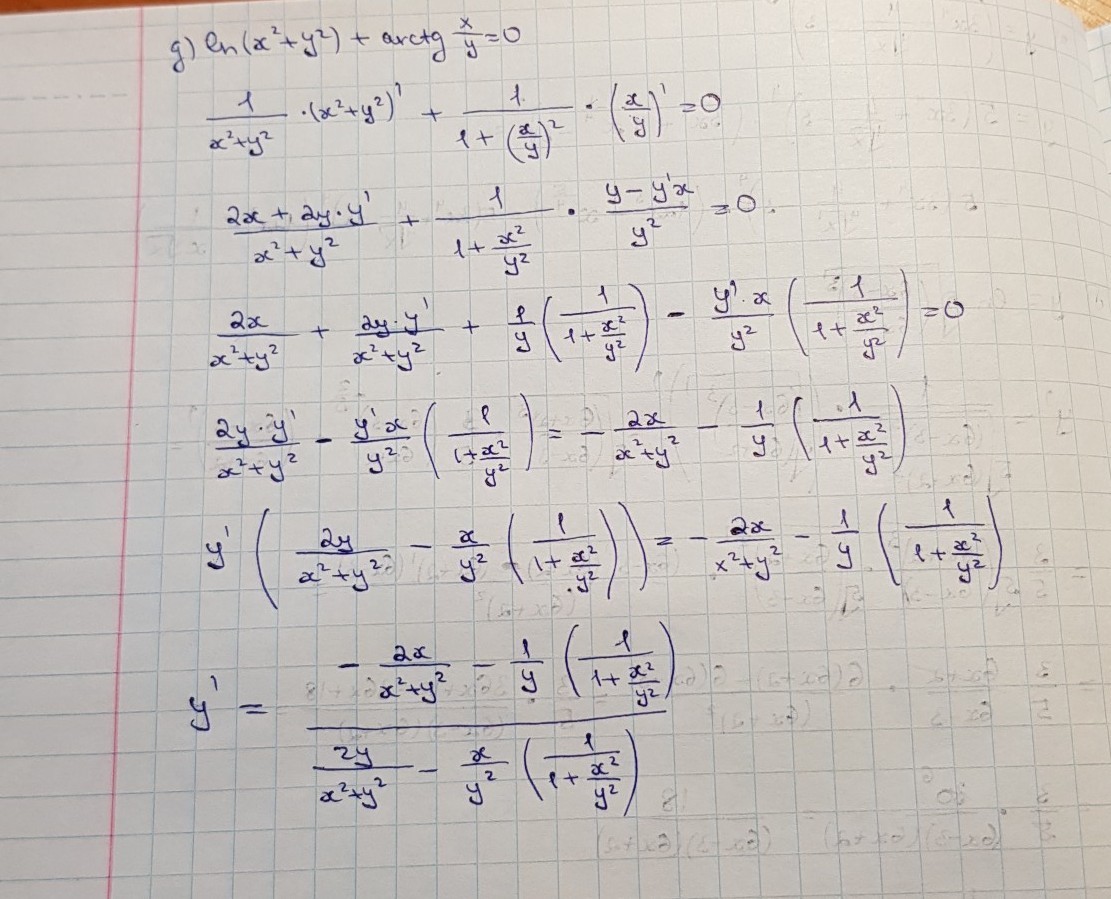 g) ln(x²+y²) + arctg x/y = 0
1/(x²+y²) · (x²+y²)' + 1/(1+(x/y)²) · (x/y)' = 0
(2x + 2y·y')/(x²+y²) + 1/(1+x²/y²) · (y − y'x)/y² = 0
2x/(x²+y²) + 2y·y'/(x²+y²) + 1/y (1/(1+x²/y²)) − y'·x/y² (1/(1+x²/y²)) = 0
2y·y'/(x²+y²) − y'·x/y² (1/(1+x²/y²)) = − 2x/(x²+y²) − 1/y (1/(1+x²/y²))
y' (2y/(x²+y²) − x/y² (1/(1+x²/y²))) = − 2x/(x²+y²) − 1/y (1/(1+x²/y²))
y' = (− 2x/(x²+y²) − 1/y (1/(1+x²/y²)))/(2y/(x²+y²) − x/y² (1/(1+x²/y²)))